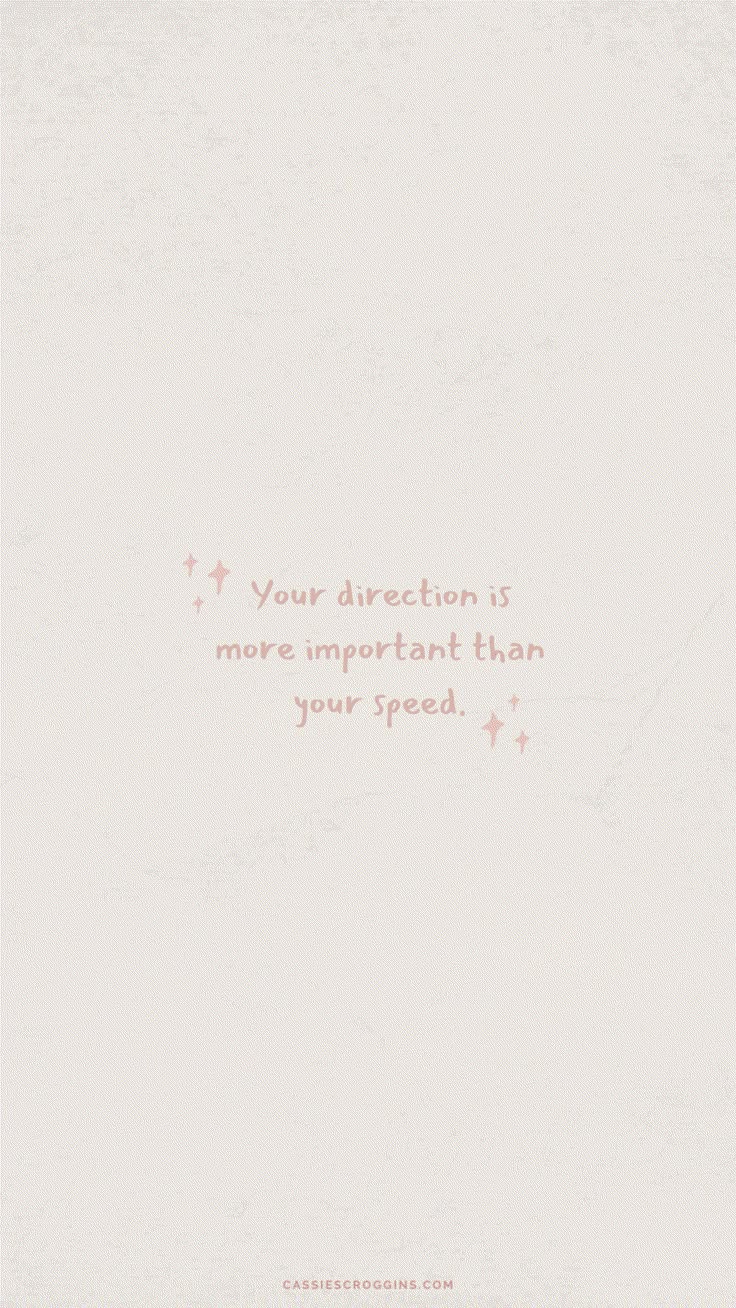 Your direction is
more important than
your speed.
CASSIESCROGGINS.COM